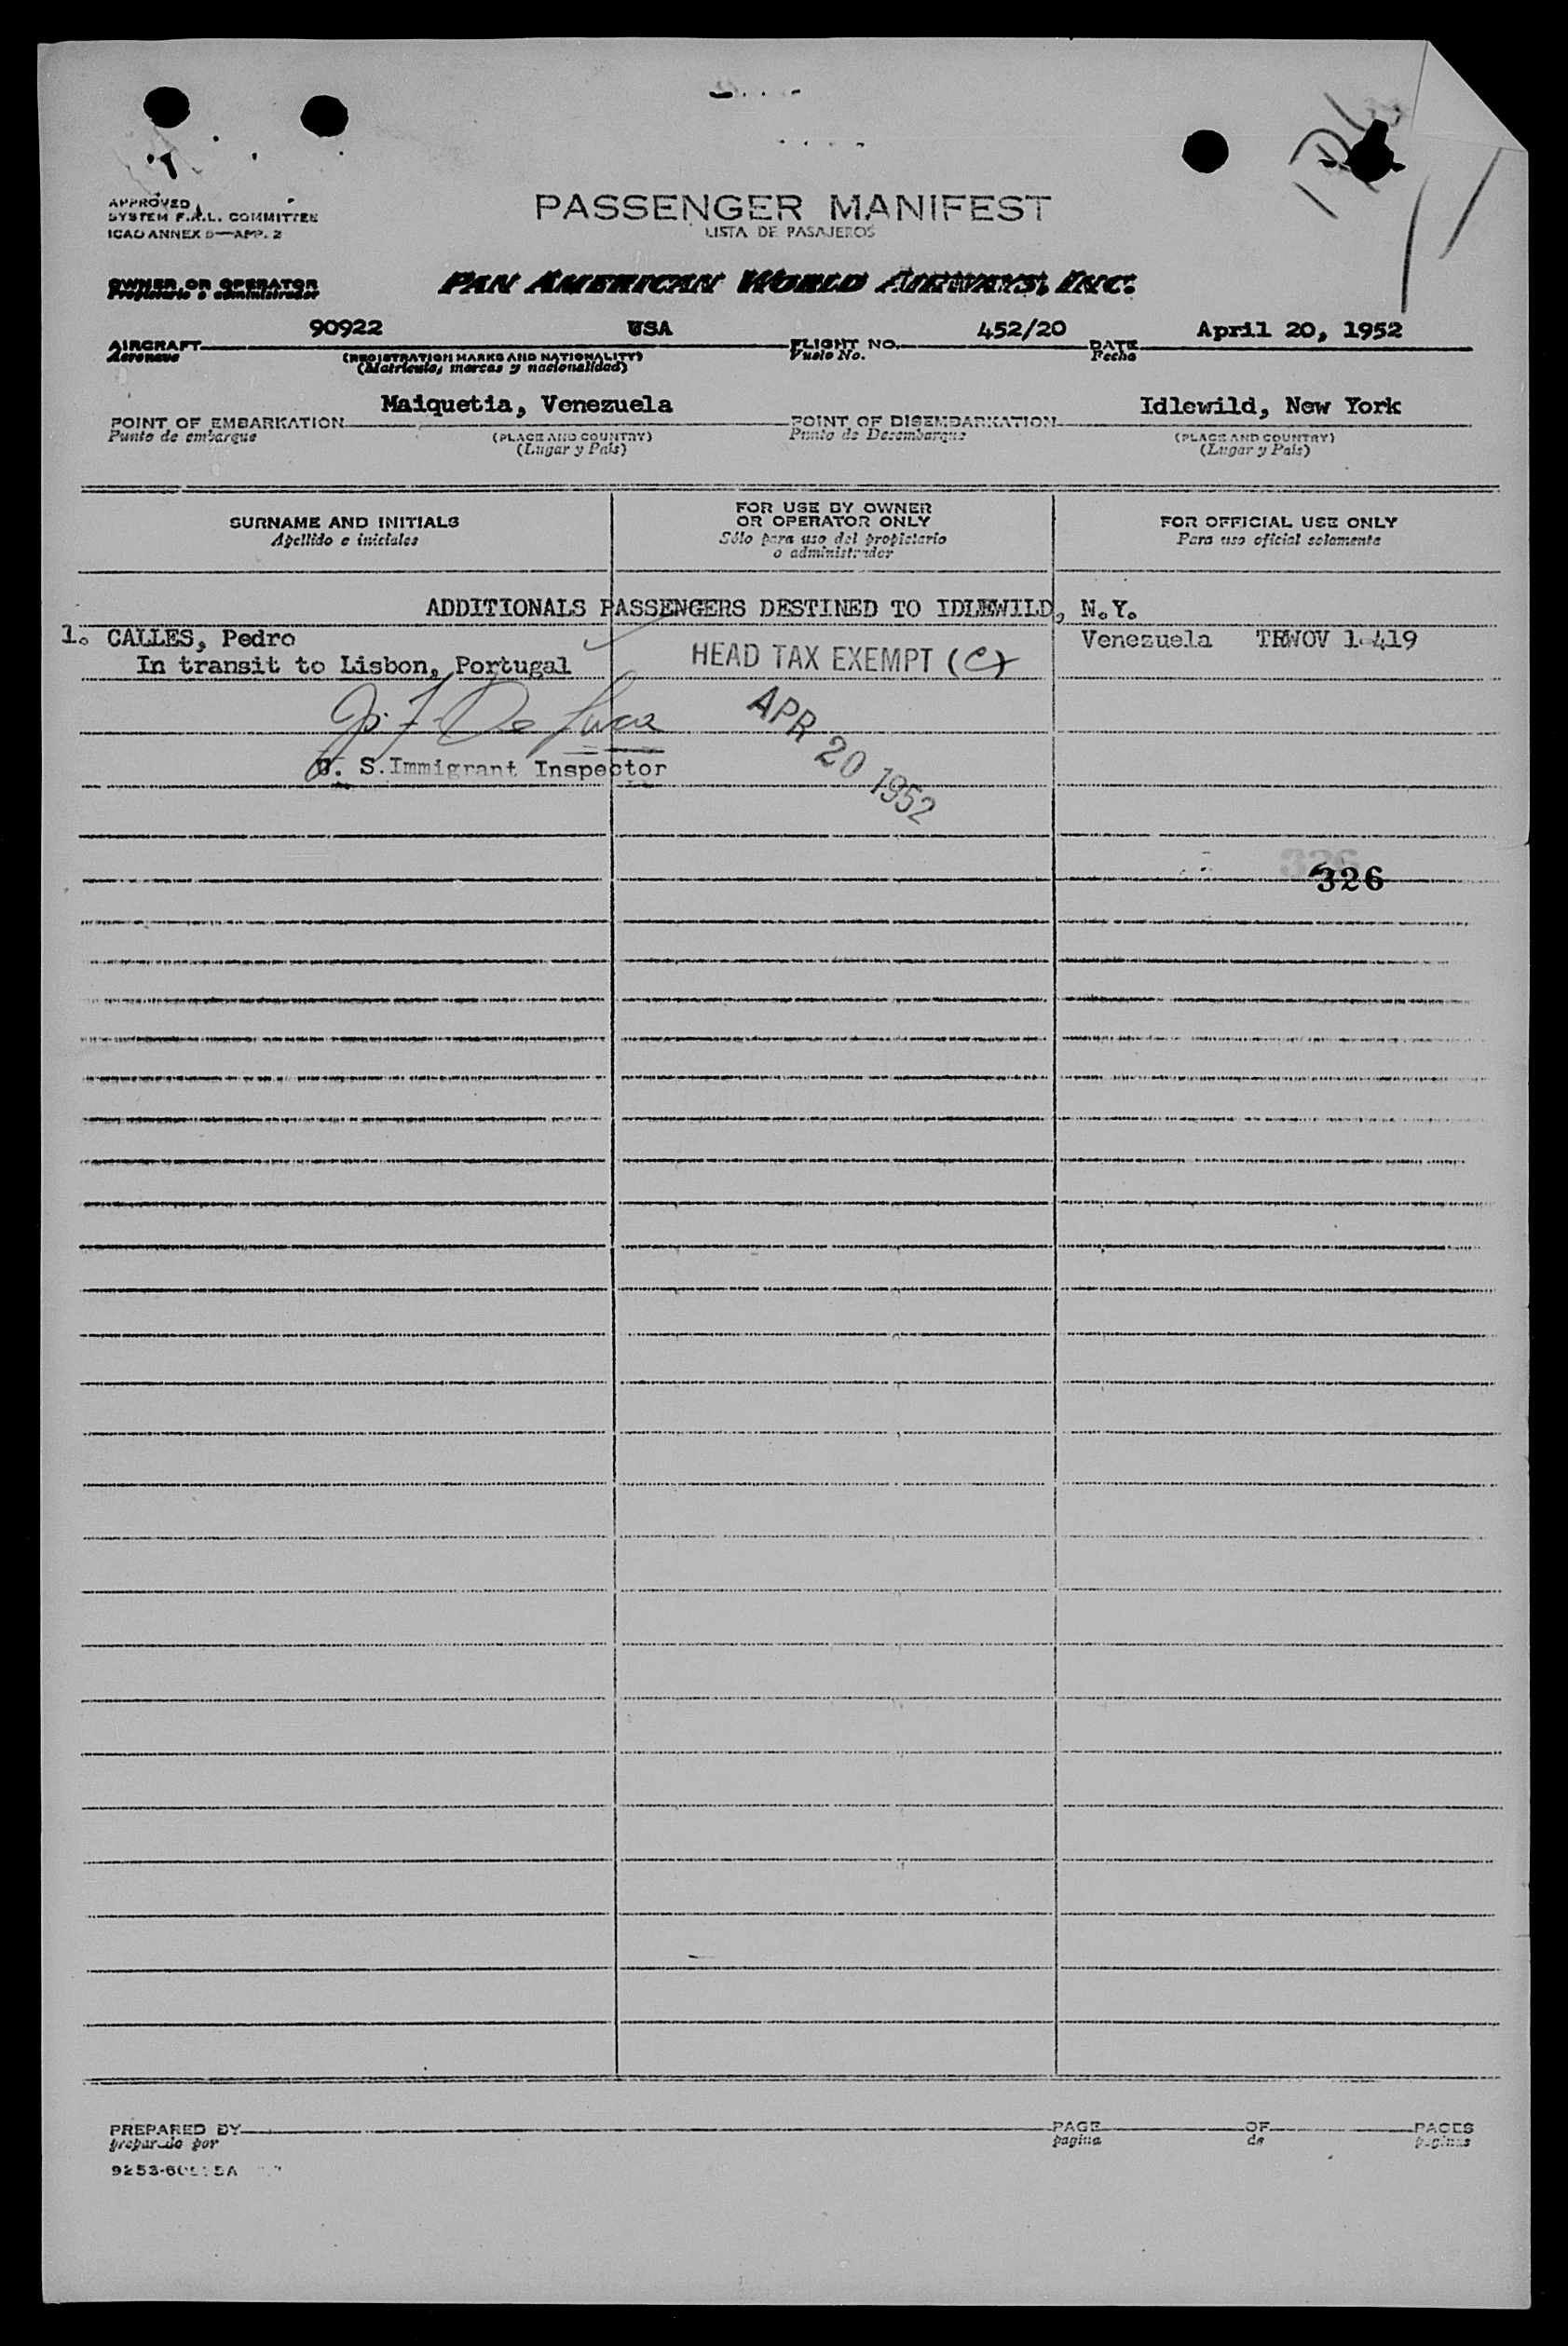 APPROVED
SYSTEM F.A.L. COMMITTEE
ICAO ANNEX 9—APP. 2
PASSENGER MANIFEST
LISTA DE PASAJEROS
OWNER OR OPERATOR
Propietario o administrador
PAN AMERICAN WORLD AIRWAYS, INC.
AIRCRAFT 90922 USA FLIGHT NO. 452/20 DATE April 20, 1952
Aeronave (REGISTRATION MARKS AND NATIONALITY) Vuelo No. Fecha
(Matricula, marcas y nacionalidad)
POINT OF EMBARKATION Maiquetia, Venezuela POINT OF DISEMBARKATION Idlewild, New York
Punto de embarque (PLACE AND COUNTRY) Punto de Desembarque (PLACE AND COUNTRY)
(Lugar y País) (Lugar y País)
SURNAME AND INITIALS
Apellido e iniciales
FOR USE BY OWNER
OR OPERATOR ONLY
Sólo para uso del propietario
o administrador
FOR OFFICIAL USE ONLY
Para uso oficial solamente
ADDITIONALS PASSENGERS DESTINED TO IDLEWILD, N.Y.
1. CALLES, Pedro Venezuela TRWOV 1-419
In transit to Lisbon, Portugal HEAD TAX EXEMPT (C)
De Luca
U. S. Immigrant Inspector
APR 20 1952
326
PREPARED BY PAGE OF PAGES
preparado por pagina de paginas